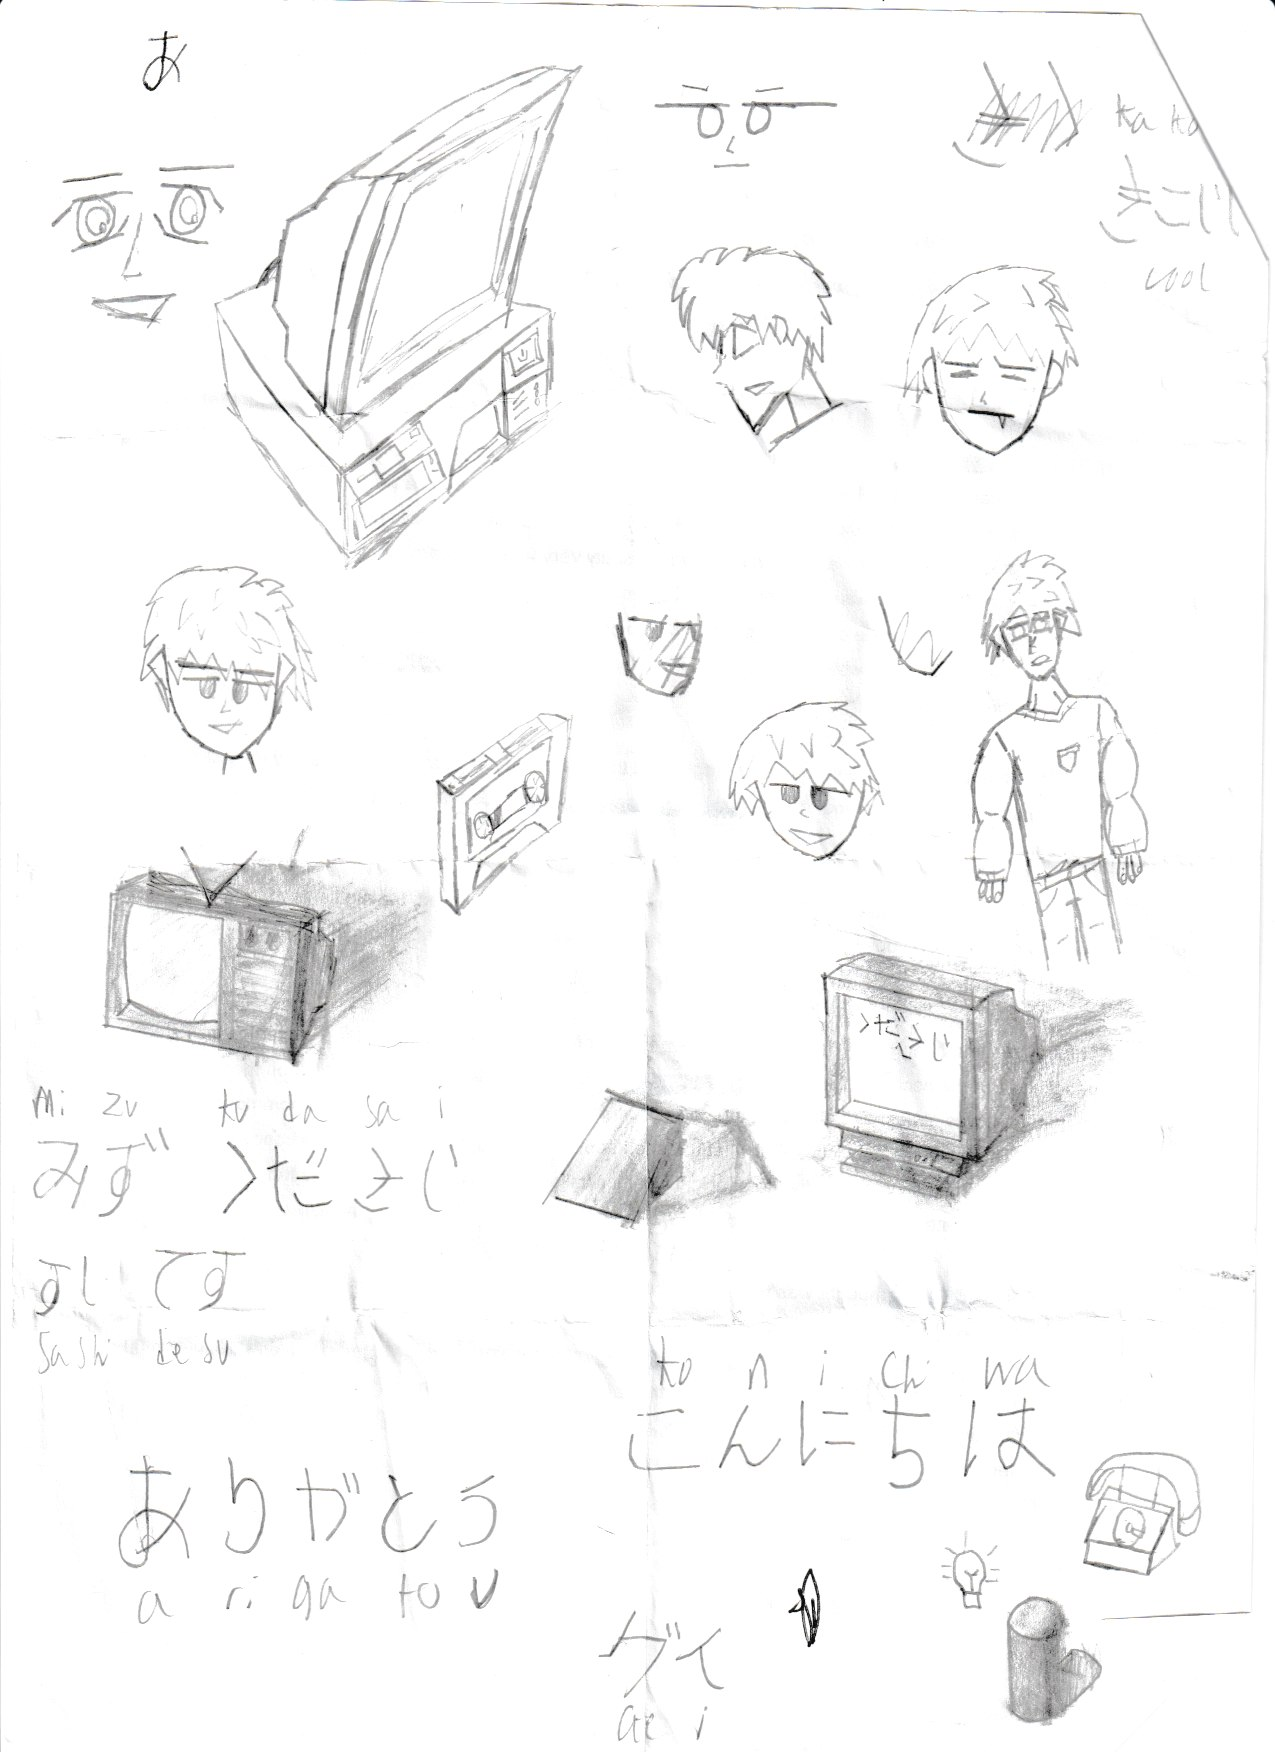 あ
ka ko
cool
mi zu ku da sa i
みず ください
すし です
Sashi desu
ko n i chi wa
こんにちは
ありがとう
a ri ga to u
ゲイ